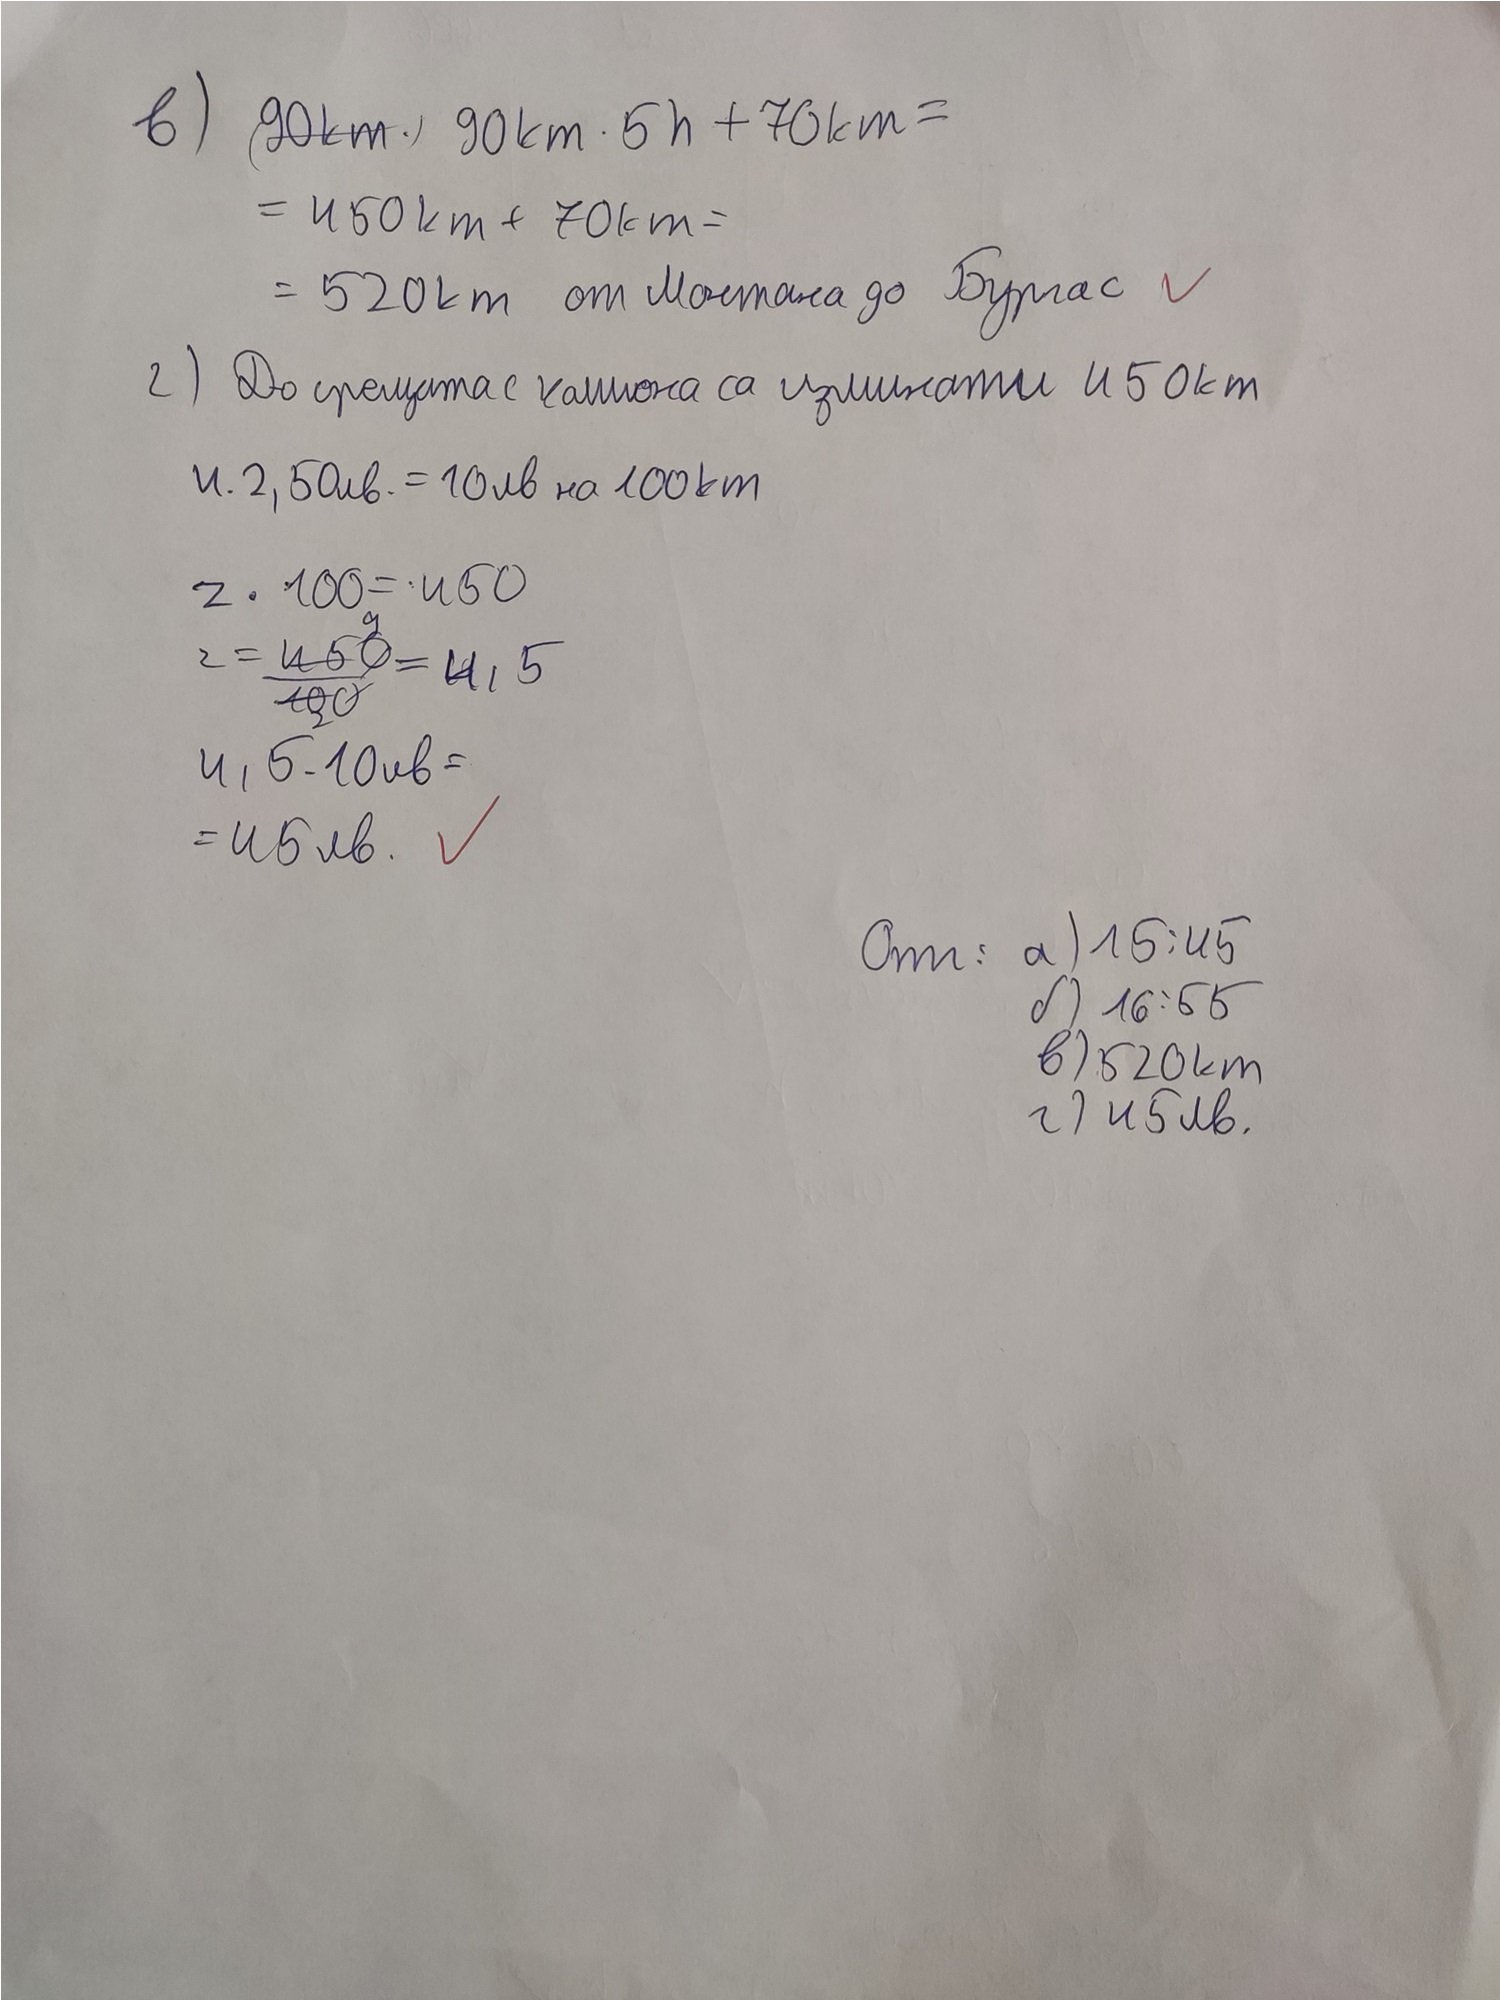 в) (90km.) 90km · 5h + 70km =
= 450km + 70km =
= 520km от Монтана до Бургас ✓
г) До срещата с камиона са изминати 450km
4.2,50лв. = 10лв на 100km
z · 100 = 450
z = 450/100 = 4,5
9
2
4,5 · 10лв =
= 45лв. ✓
Отг: а) 15:45
б) 16:55
в) 520km
г) 45лв.